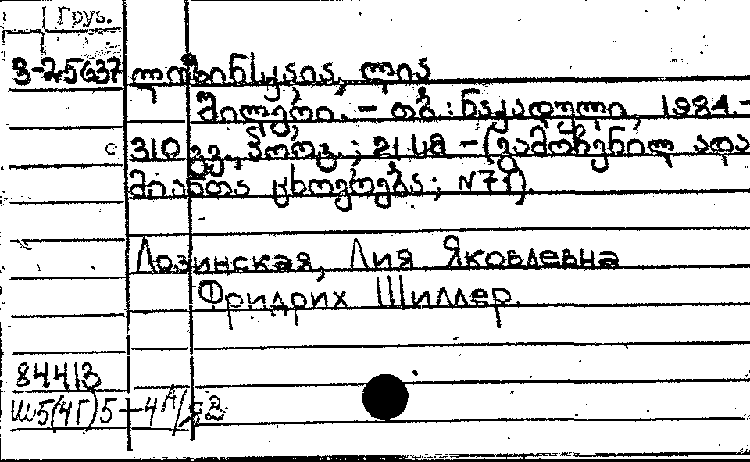 Груз.
3-25637 ლოზინსკაია, ლია
შილერი. - თბ. : ნაკადული, 1984. -
310 გვ., პორტ. ; 21 სმ - (გამოჩენილ ადა
მიანთა ცხოვრება; N71).
Лозинская, Лия Яковлевна
Фридрих Шиллер.
84413
Ш5(4Г)5-4